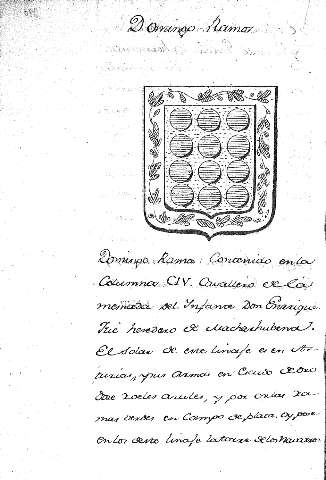 Domingo Ramos
Domingo Ramos: Contenido en la
Columna CIV. Cavallero de la
mesnada del Infante Don Enrique
Fué heredero de
El solar de este linaje es en As-
turias, y sus armas en Escudo de Oro
doze roeles azules, y por orla ra-
mas verdes en campo de plata. Ay
en los de este linaje la